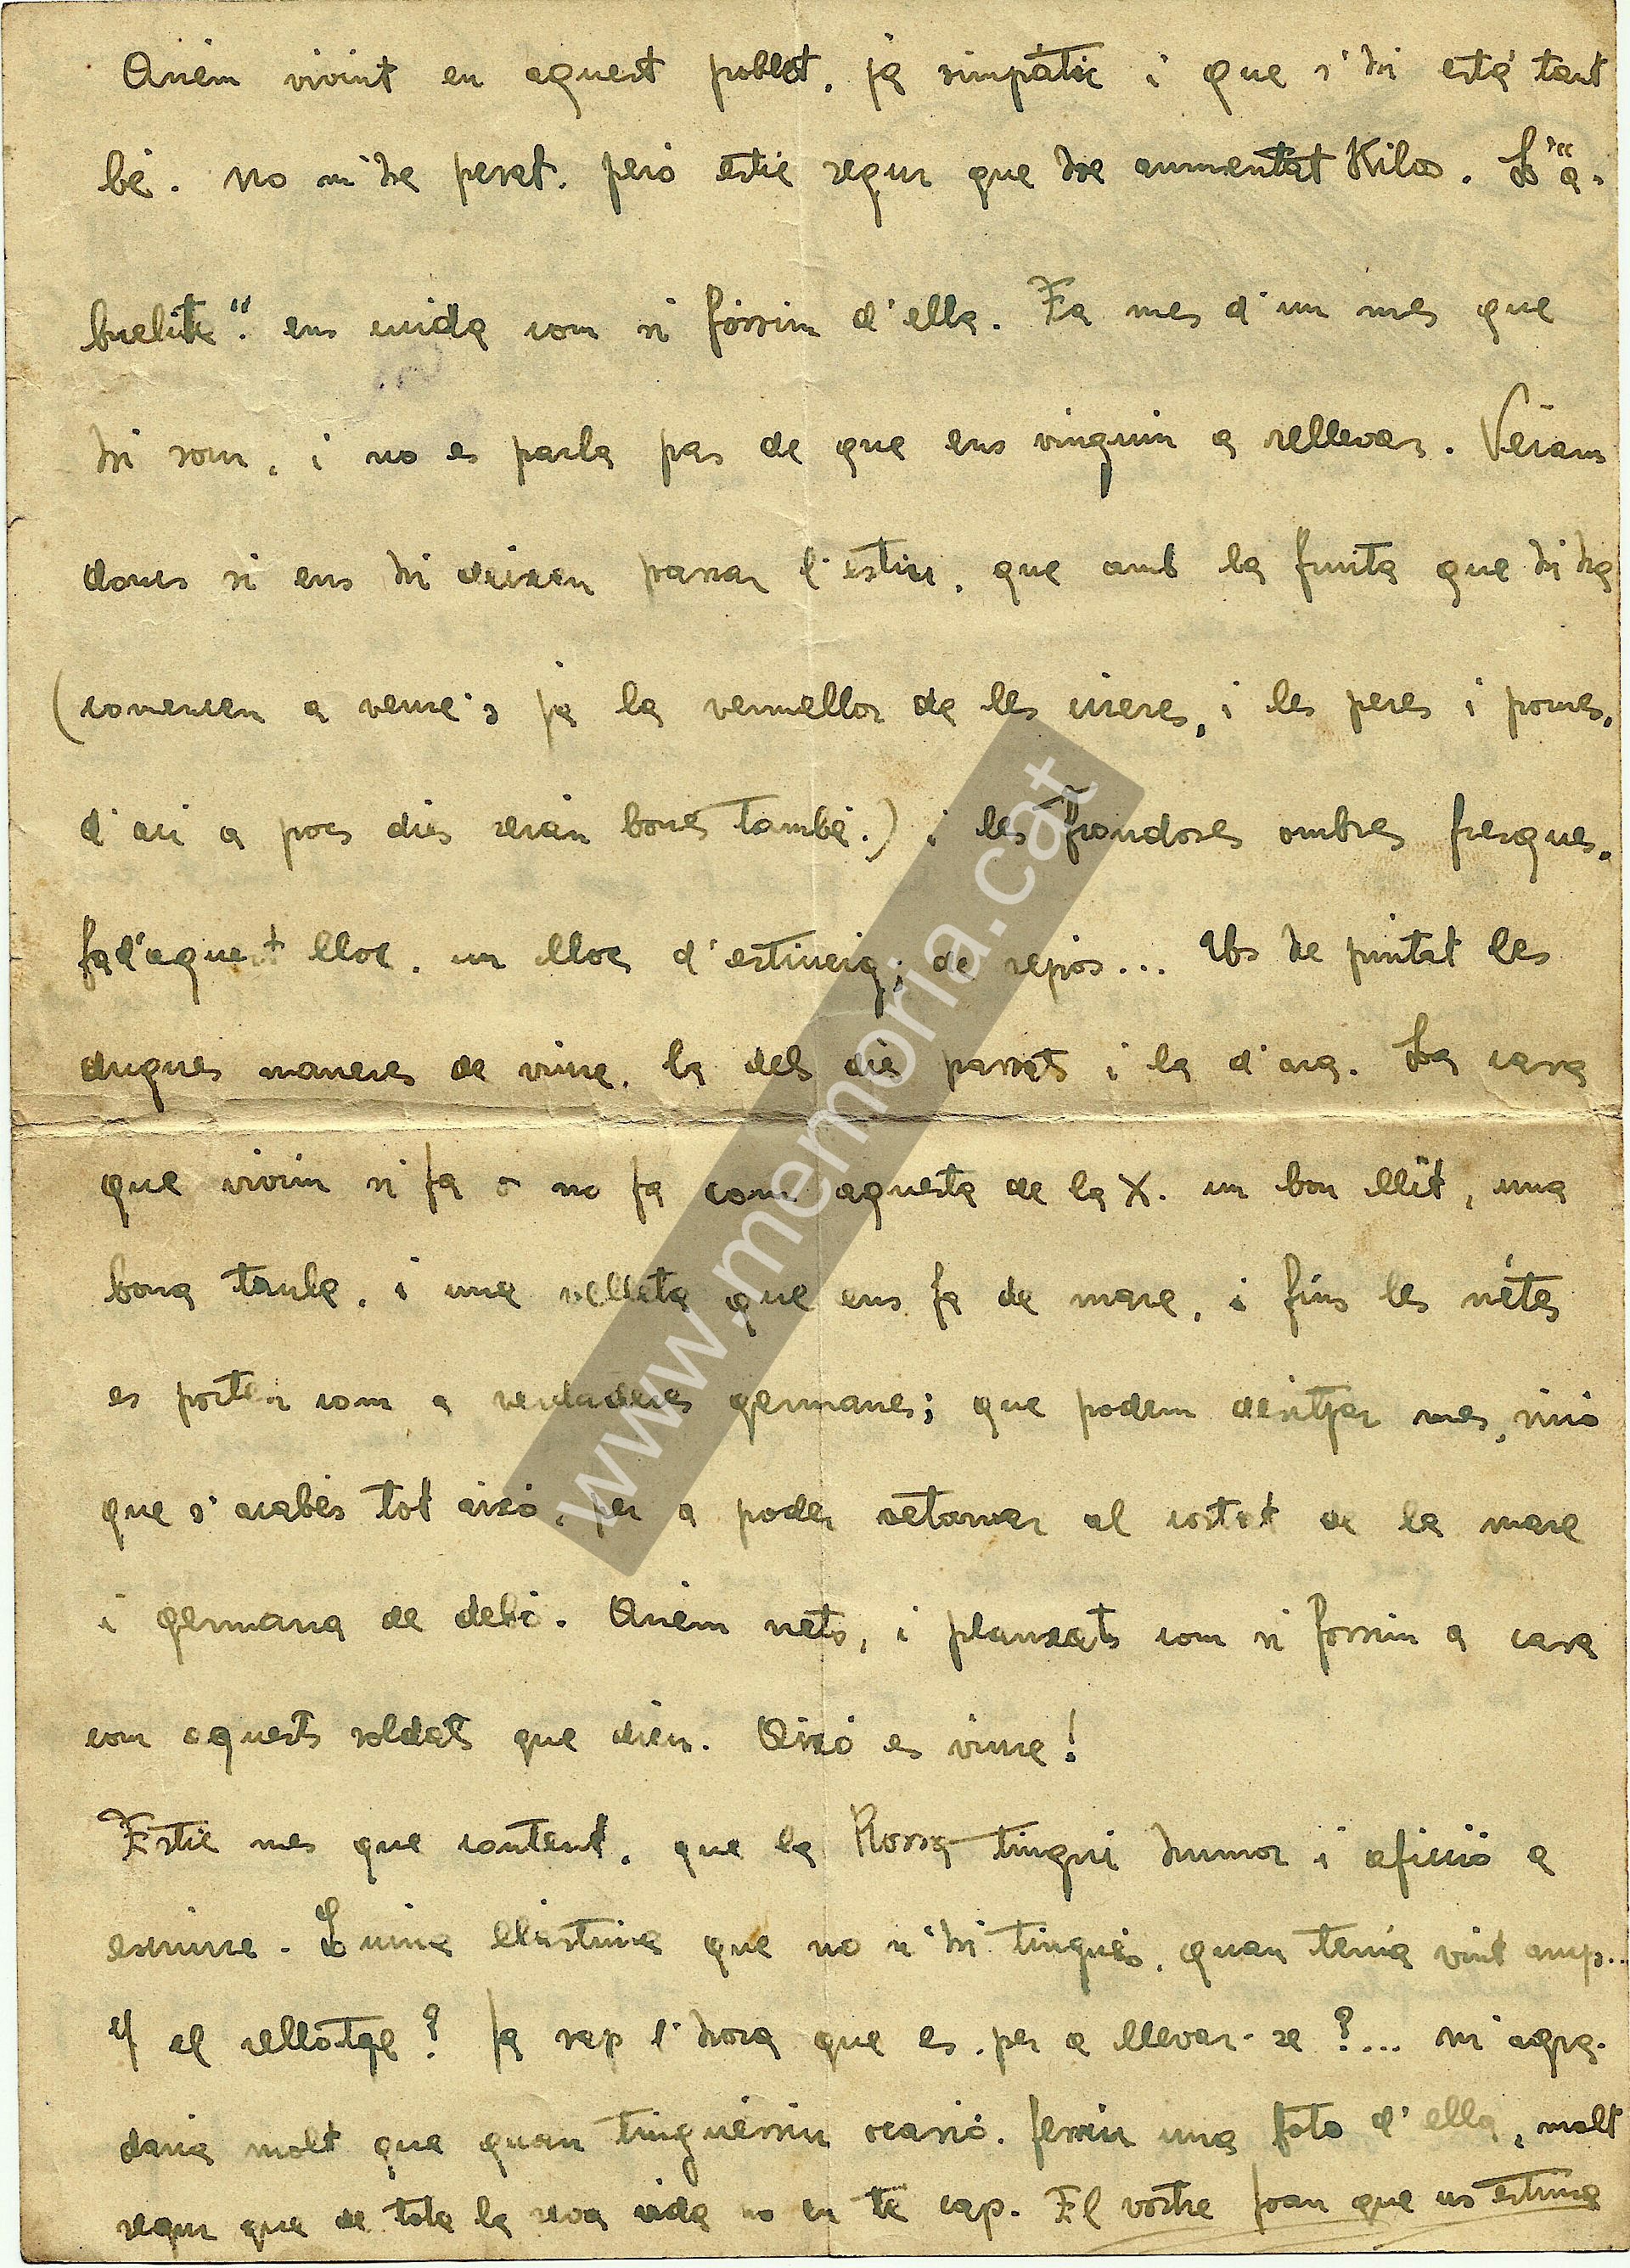 Aném vivint en aquest poblet, ja simpatic i que s'hi está tant
bé. No m'he pesat, peró estic segur que he aumentat Kilos. L'"a-
buelita". ens cuida com si fóssim d'ella. Fa mes d'un mes que
hi som, i no es parla pas de que ens vinguin a rellevar. Veiam
doncs si ens hi deixen passar l'estiu, que amb la fruita que hi ha
(comencen a veure's ja la vermellor de les cireres, i les peres i pomes,
d'aci a pocs dies seran bones també.) i les frondoses ombres fresques,
fa d'aquest lloc, un lloc d'estiueig; de repós... Us he pintat les
dugues maneres de viure, la dels dies passats i la d'ara. La casa
que vivim si fa o no fa com aquesta de la X. un bon llit, una
bona taula, i una velleta que ens fa de mare, i fins les nétes
es porten com a verdaderes germanes; que podem desitjar mes, sinó
que s'acabés tot aixó, per a poder retornar al costat de la mare
i germana de debó. Aném nets, i planxats com si fossim a casa
com aquests soldats que dieu. Aixó es viure!
Estic mes que content, que la Rossa tingui humor i afició a
escriure. Quina llástima que no n'hi tingués, quan tenía vint anys..
I el rellotge? Ja sap l'hora que es, per a llevar-se?... M'agra-
daria molt que quan tinguéssiu ocasió. fessiu una foto d'ella, molt
segur que de tota la seva vida no en te cap. El vostre Joan que us estima
www.memoria.cat